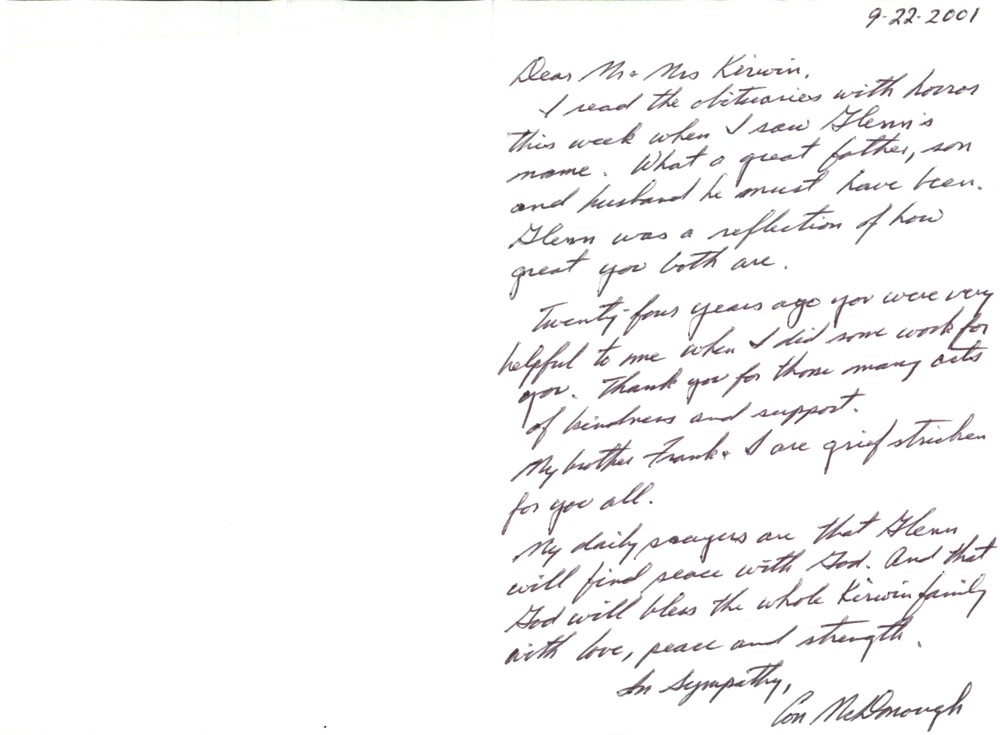 9-22-2001
Dear Mr & Mrs Kirwin,
I read the obituaries with horror
this week when I saw Glenn's
name. What a great father, son
and husband he must have been.
Glenn was a reflection of how
great you both are.
Twenty-four years ago you were very
helpful to me when I did some work for
you. Thank you for those many acts
of kindness and support.
My brother Frank & I are grief stricken
for you all.
My daily prayers are that Glenn
will find peace with God. And that
God will bless the whole Kirwin family
with love, peace and strength.
In Sympathy,
Con McDonough